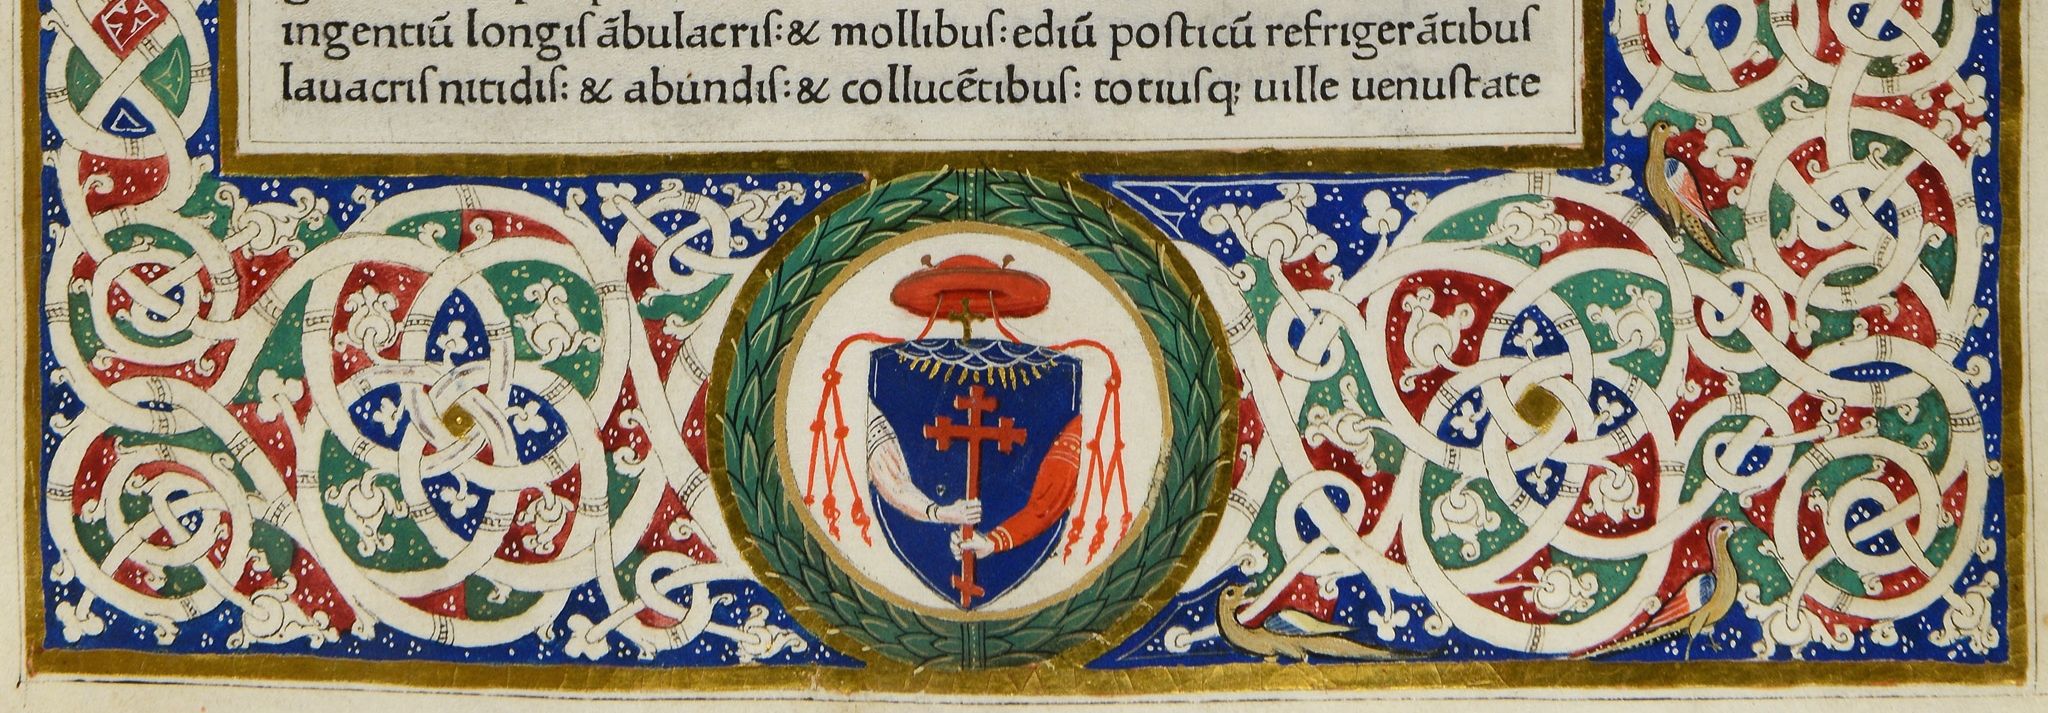 ingentiū longiſ ãbulacriſ: & mollibuſ: ediū poſticū refrigerãtibuſ
lauacriſ nitidiſ: & abundiſ: & collucẽtibuſ: totiuſq; uille uenuſtate